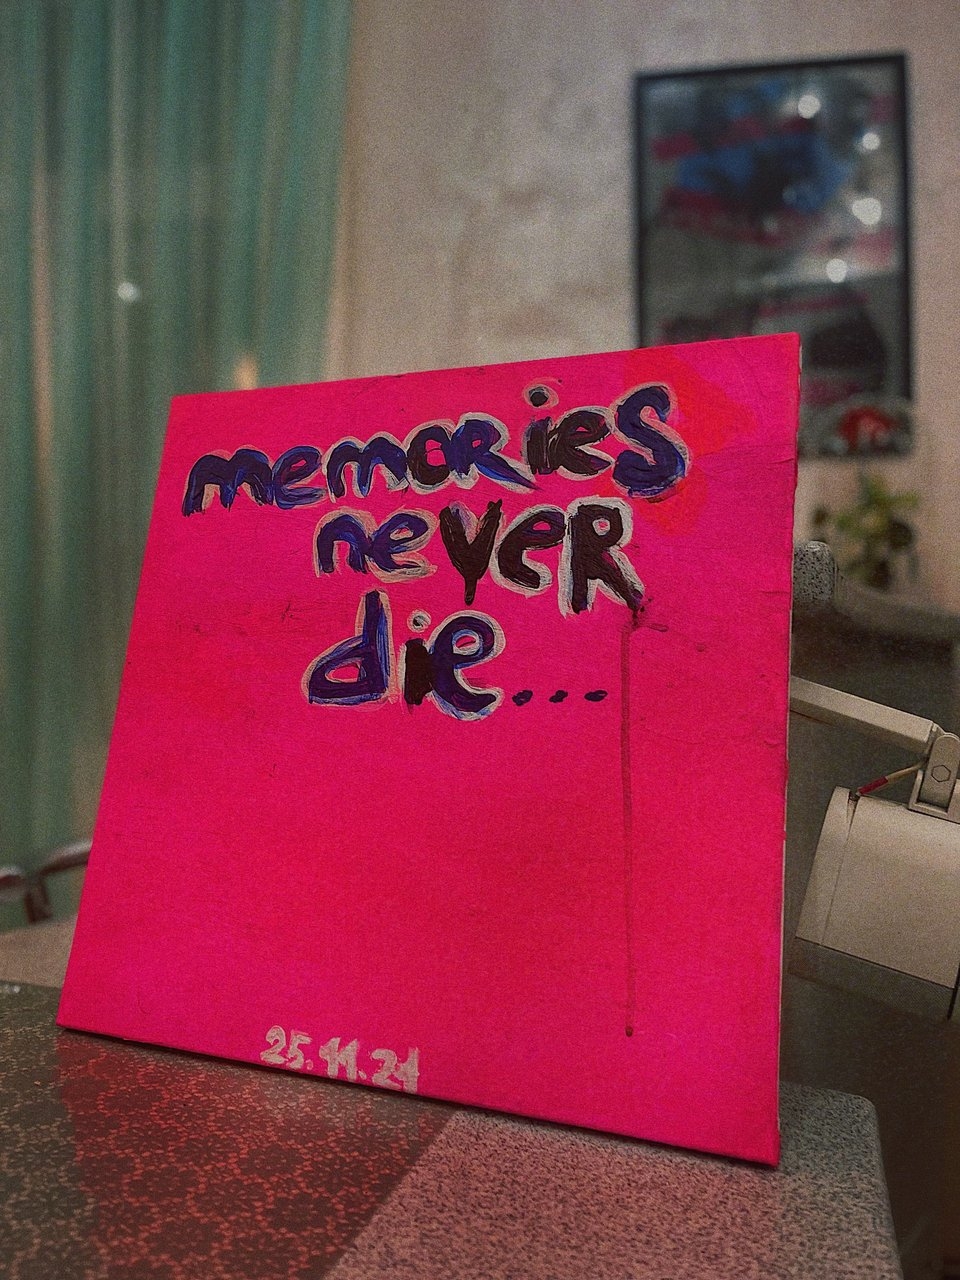 memoRieS
neveR
die...
25.11.21